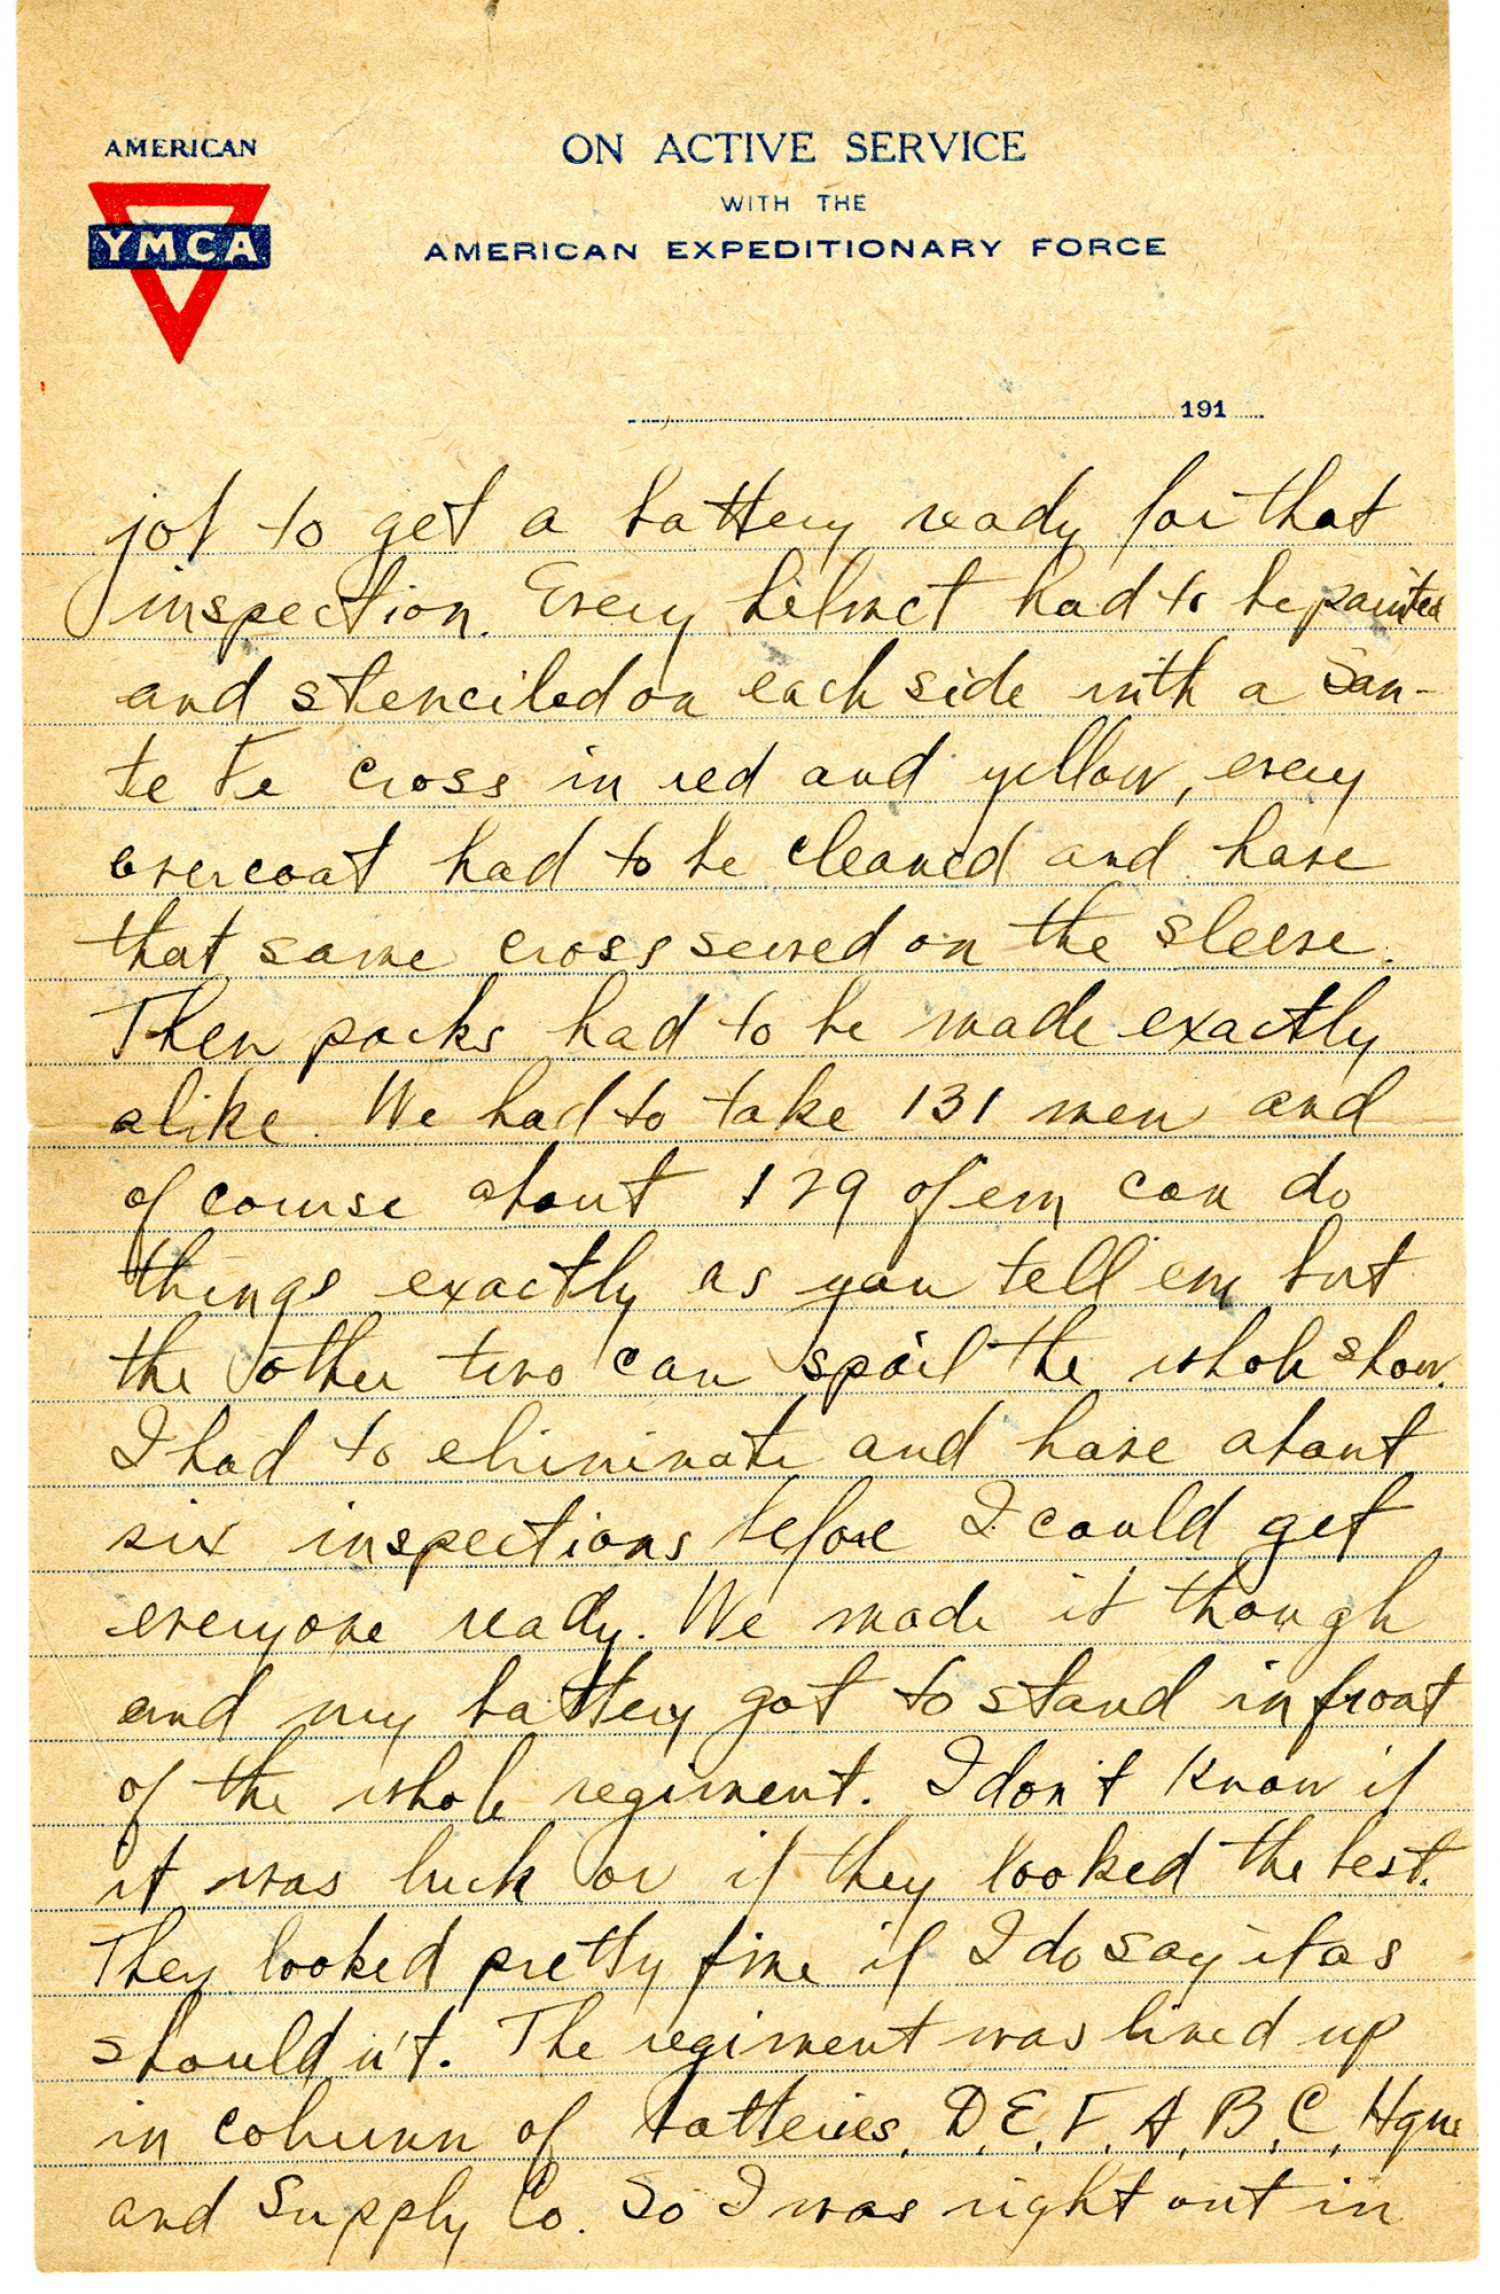 AMERICAN
YMCA
ON ACTIVE SERVICE
WITH THE
AMERICAN EXPEDITIONARY FORCE
191
job to get a battery ready for that
inspection. Every helmet had to be painted
and stenciled on each side with a San-
te Fe cross in red and yellow, every
overcoat had to be cleaned and have
that same cross sewed on the sleeve.
Then packs had to be made exactly
alike. We had to take 131 men and
of course about 129 of em can do
things exactly as you tell em but
the other two can spoil the whole show.
I had to eliminate and have about
six inspections before I could get
everyone ready. We made it though
and my battery got to stand in front
of the whole regiment. I don't know if
it was luck or if they looked the best.
They looked pretty fine if I do say it as
shouldn't. The regiment was lined up
in column of batteries, D, E, F, A, B, C, Hqrs
and Supply Co. So I was right out in